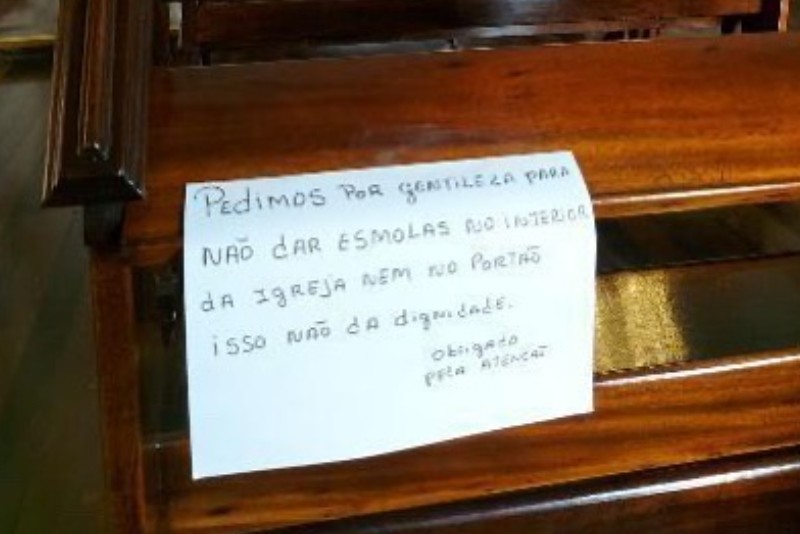 Pedimos POR GENTILEZA PARA
NÃO dAR ESMOLAS NO INTERIOR
dA IGREJA NEM NO PORTÃO
iSSO NÃO dA dignidade.
Obrigado
PELA ATENÇÃO